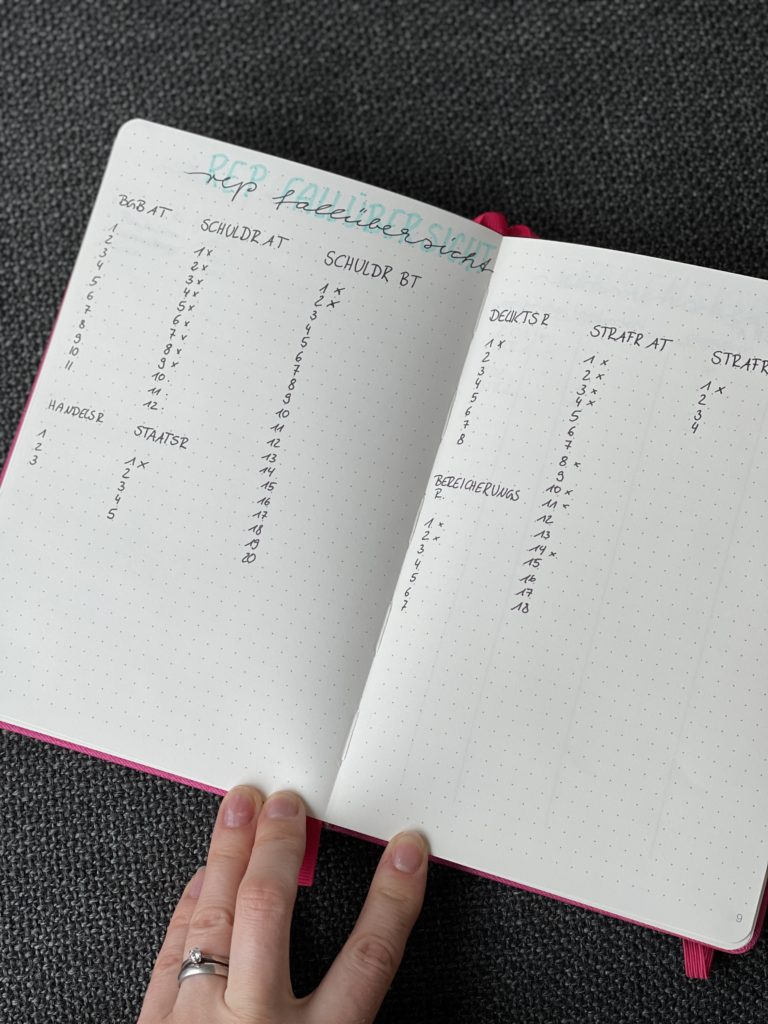 REP FALLÜBERSICHT
rep fallübersicht
BGB AT
1
2
3
4
5
6
7
8
9
10
11
SCHULDR AT
1 x
2 x
3 x
4 x
5 x
6 x
7 x
8 x
9 x
10
11
12
SCHULDR BT
1 x
2 x
3
4
5
6
7
8
9
10
11
12
13
14
15
16
17
18
19
20
HANDELSR
1
2
3
STAATSR
1 x
2
3
4
5
DELIKTSR
1 x
2
3
4
5
6
7
8
BEREICHERUNGS
R.
1 x
2 x
3
4
5
6
7
STRAFR AT
1 x
2 x
3 x
4 x
5
6
7
8 x
9
10 x
11 x
12
13
14 x
15
16
17
18
STRAFR
1 x
2
3
4
9